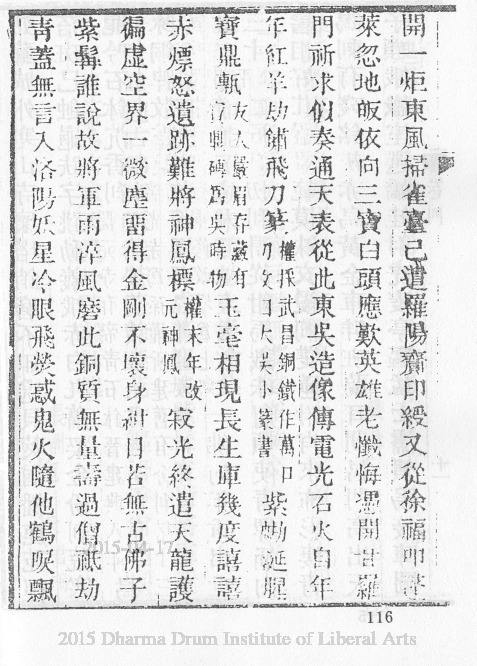 開一炬東風掃雀臺已遣羅陽齎印綬又從徐福叩蓬
萊忽地皈依向三寶白頭應歎英雄老懺悔還開甘羅
門祈求似奏通天表從此東吳造像傳電光石火自年
年紅羊劫鏽飛刀篆權採武昌銅鐵作萬口刀文曰大吳篆書紫蜐涎腥
寶鼎甎友人嚴眉存藏有寶鼎磚爲吳時物玉毫相現長生庫幾度譆譆
赤熛怒遺跡難將神鳳標權末年改元神鳳寂光終遣天龍護
徧虛空界一微塵留得金剛不壞身紺目若無古佛子
紫髯誰說故將軍雨淬風磨此銅質無量壽過僧祇劫
靑蓋無言入洛陽妖星冷眼飛熒惑鬼火隨他鶴唳飄
2015-04-17
116
2015 Dharma Drum Institute of Liberal Arts